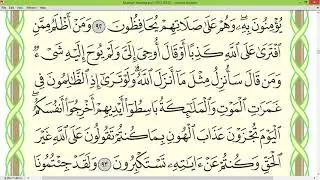 يُؤْمِنُونَ بِهِۦ ۖ وَهُمْ عَلَىٰ صَلَاتِهِمْ يُحَافِظُونَ ٩٢ وَمَنْ أَظْلَمُ مِمَّنِ
ٱفْتَرَىٰ عَلَى ٱللَّهِ كَذِبًا أَوْ قَالَ أُوحِىَ إِلَىَّ وَلَمْ يُوحَ إِلَيْهِ شَىْءٌ
وَمَن قَالَ سَأُنزِلُ مِثْلَ مَآ أَنزَلَ ٱللَّهُ ۗ وَلَوْ تَرَىٰٓ إِذِ ٱلظَّٰلِمُونَ فِى
غَمَرَٰتِ ٱلْمَوْتِ وَٱلْمَلَٰٓئِكَةُ بَاسِطُوٓا۟ أَيْدِيهِمْ أَخْرِجُوٓا۟ أَنفُسَكُمُ ۖ
ٱلْيَوْمَ تُجْزَوْنَ عَذَابَ ٱلْهُونِ بِمَا كُنتُمْ تَقُولُونَ عَلَى ٱللَّهِ غَيْرَ
ٱلْحَقِّ وَكُنتُمْ عَنْ ءَايَٰتِهِۦ تَسْتَكْبِرُونَ ٩٣ وَلَقَدْ جِئْتُمُونَا